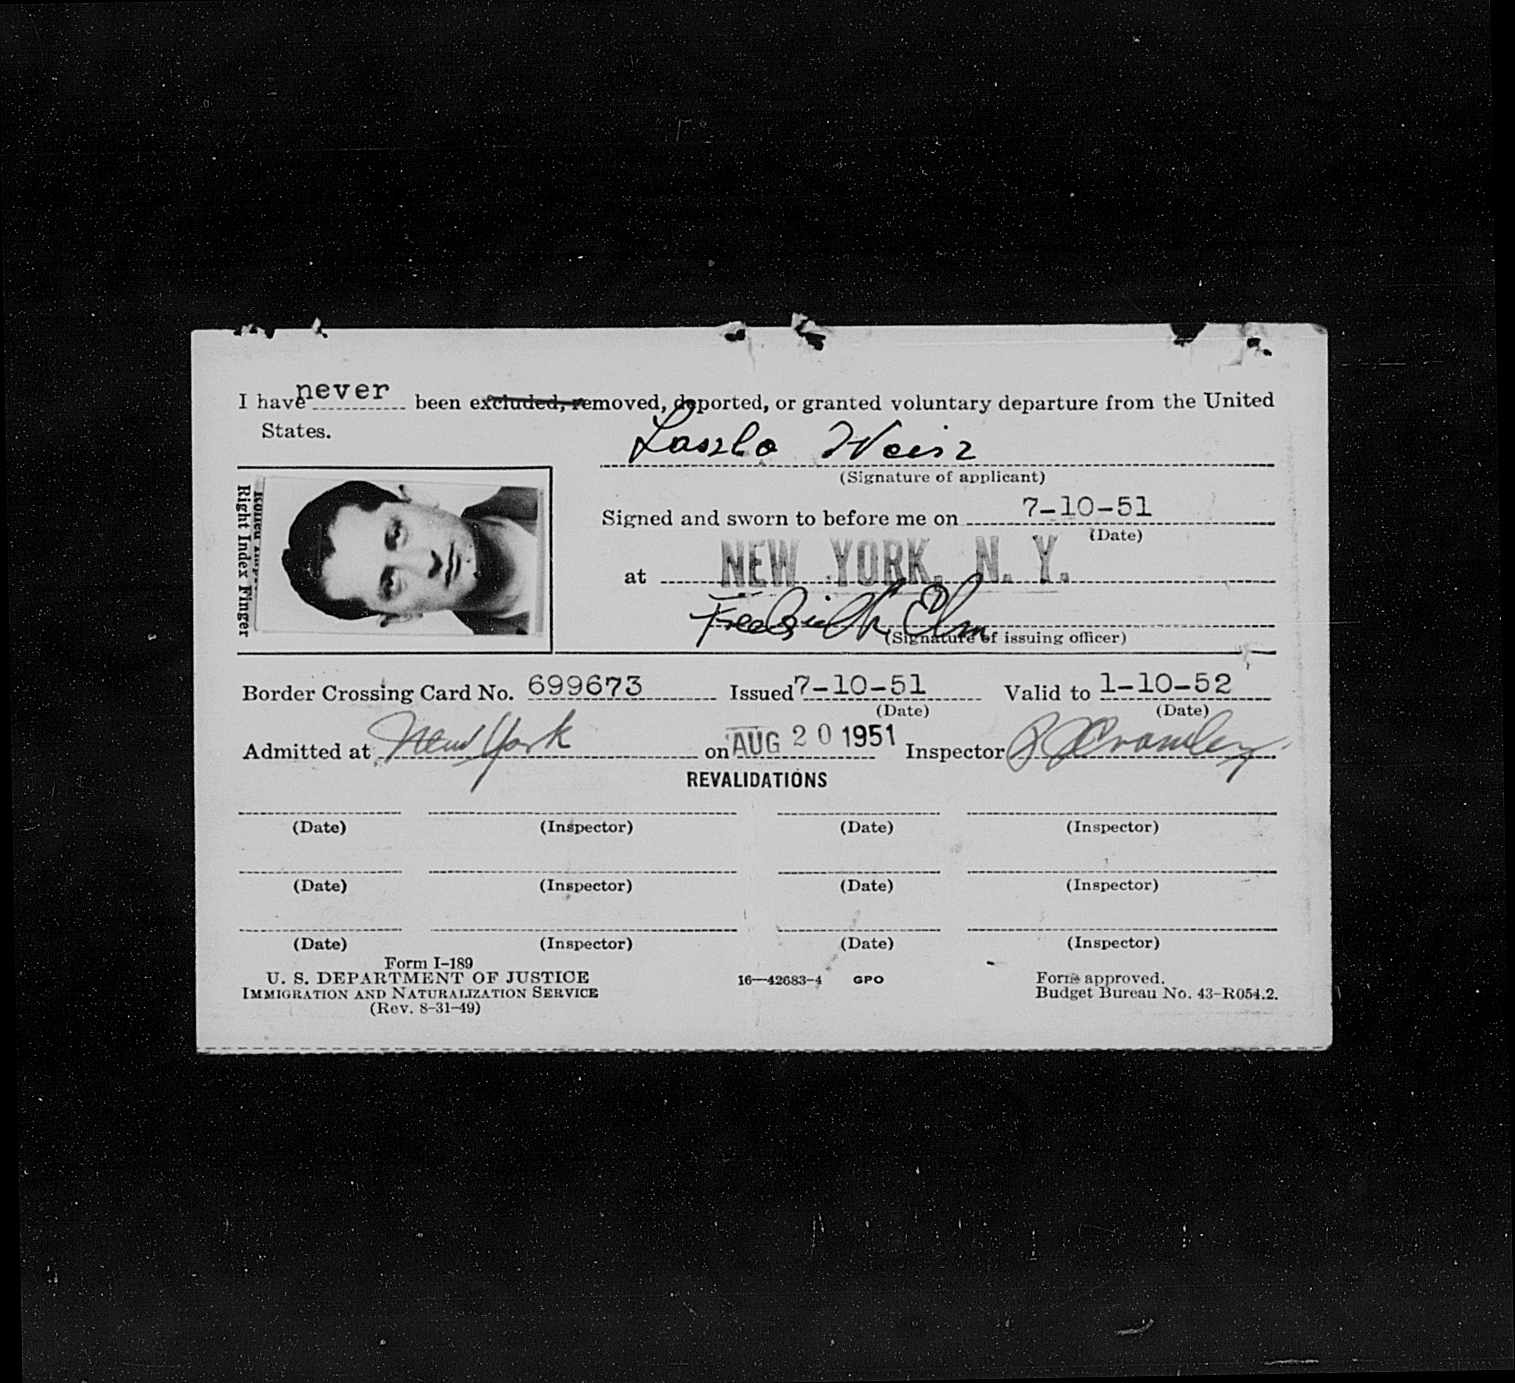 I have never been excluded, removed, deported, or granted voluntary departure from the United
States.
Laszlo Weisz
(Signature of applicant)
Signed and sworn to before me on 7-10-51
(Date)
at NEW YORK, N. Y.
(Signature of issuing officer)
Right Index Finger
Border Crossing Card No. 699673 Issued 7-10-51 Valid to 1-10-52
(Date) (Date)
Admitted at New York on AUG 20 1951 Inspector
REVALIDATIONS
(Date) (Inspector) (Date) (Inspector)
(Date) (Inspector) (Date) (Inspector)
(Date) (Inspector) (Date) (Inspector)
Form I-189
U. S. DEPARTMENT OF JUSTICE
IMMIGRATION AND NATURALIZATION SERVICE
(Rev. 8-31-49)
16—42683-4 GPO
Form approved.
Budget Bureau No. 43-R054.2.